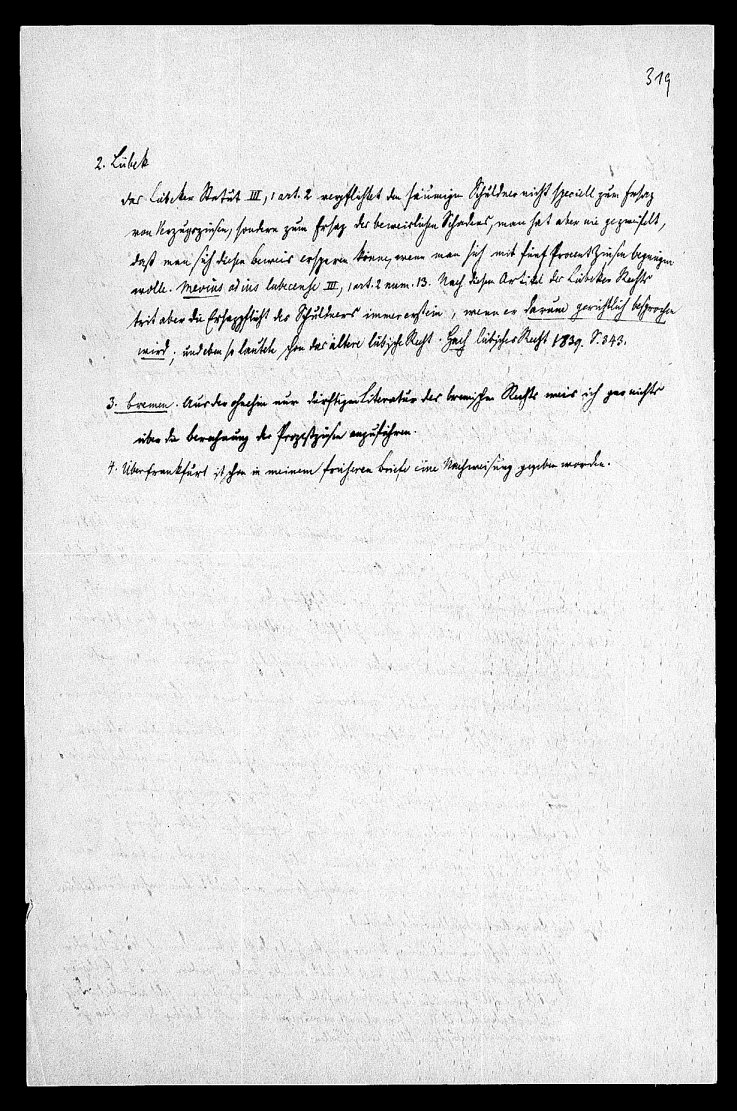 319
2. Lübek
das Lübeker Statut III, 1 art. 2 verpflichtet den säumigen Schuldner nicht speciell zum Ersaz
von Verzugszinsen, sondern zum Ersaz des beweislichen Schadens, man hat aber nie gezweifelt,
daß man sich diesen beweis ersparen könne, wenn man sich mit fünf Procent Zinsen begnügen
wolle. Mevius ad ius lubecense III, 1 art. 2 num. 13. Nach diesem Artikel des Lübeker Rechts
trit aber die Ersazpflicht des Schuldners immer erst ein, wenn er darum gerichtlich besprochen
wird; und eben so lautete schon das ältere lübische Recht. Hach lübisches Recht 1839. S. 343.
3. bremen. Aus der ohnehin nur dürftigen Literatur des bremischen Rechts weis ich gar nichts
über die berechnung der Prozeßzinsen anzuführen.
4. Über frankfurt ist schon in meinem früheren briefe eine Nachweisung gegeben worden.